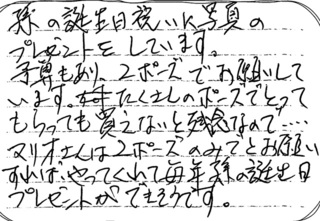 孫の誕生日祝いに写真の
プレゼントをしています。
予算もあり、2ポーズでお願いして
います。たくさんのポーズでとって
もらっても買えないと残念なので‥‥
マリオさんは2ポーズのみでとお願い
すれば、やってくれて毎年孫の誕生日
プレゼントができそうです。